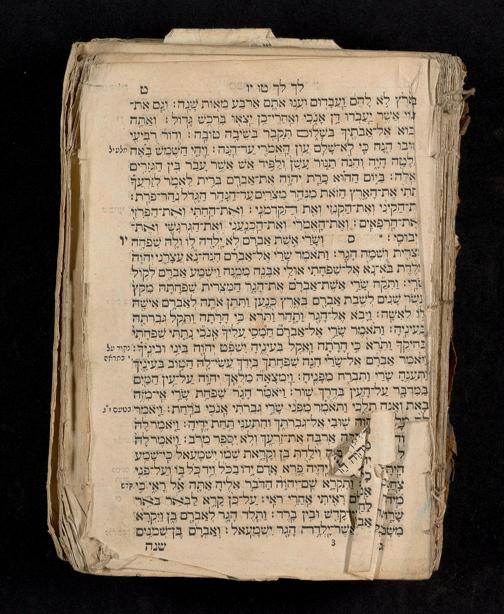 לך לך טו יו ט
בארץ לא להם ועבדום וענו אתם ארבע מאות שנה׃ וגם את־
הגוי אשר יעבדו דן אנכי ואחרי־כן יצאו ברכש גדול׃ ואתה
תבוא אל־אבתיך בשלום תקבר בשיבה טובה׃ ודור רביעי
ישובו הנה כי לא־שלם עון האמרי עד־הנה׃ ויהי השמש באה
ועלטה היה והנה תנור עשן ולפיד אש אשר עבר בין הגזרים
האלה׃ ביום ההוא כרת יהוה את־אברם ברית לאמר לזרעך
נתתי את־הארץ הזאת מנהר מצרים עד־הנהר הגדל נהר־פרת׃
את־הקיני ואת־הקנזי ואת הקדמני׃ ואת־החתי ואת־הפרזי
ואת־הרפאים׃ ואת־האמרי ואת־הכנעני ואת־הגרגשי ואת־
היבוסי׃ ס ושרי אשת אברם לא ילדה לו ולה שפחה יו
מצרית ושמה הגר׃ ותאמר שרי אל־אברם הנה־נא עצרני יהוה
מלדת בא־נא אל־שפחתי אולי אבנה ממנה וישמע אברם לקול
שרי׃ ותקח שרי אשת־אברם את־הגר המצרית שפחתה מקץ
עשר שנים לשבת אברם בארץ כנען ותתן אתה לאברם אישה
לו לאשה׃ ויבא אל־הגר ותהר ותרא כי הרתה ותקל גברתה
בעיניה׃ ותאמר שרי אל־אברם חמסי עליך אנכי נתתי שפחתי
בחיקך ותרא כי הרתה ואקל בעיניה ישפט יהוה ביני וביניך׃
ויאמר אברם אל־שרי הנה שפחתך בידך עשי־לה הטוב בעיניך
ותענה שרי ותברח מפניה׃ וימצאה מלאך יהוה על־עין המים
במדבר על־העין בדרך שור׃ ויאמר הגר שפחת שרי אי־מזה
באת ואנה תלכי ותאמר מפני שרי גברתי אנכי ברחת׃ ויאמר
שובי אל־גברתך והתעני תחת ידיה׃ ויאמר לה
ארבה את־זרעך ולא יספר מרב׃ ויאמר לה
וילדת בן וקראת שמו ישמעאל כי־שמע
יהיה פרא אדם ידו בכל ויד כל בו ועל־פני
ותקרא שם־יהוה הדבר אליה אתה אל ראי כי
ראיתי אחרי ראי׃ על־כן קרא לבאר באר
קדש ובין ברד׃ ותלד הגר לאברם בן ויקרא
אשר־ילדה הגר ישמעאל׃ ואברם בן־שמנים
שנת
3